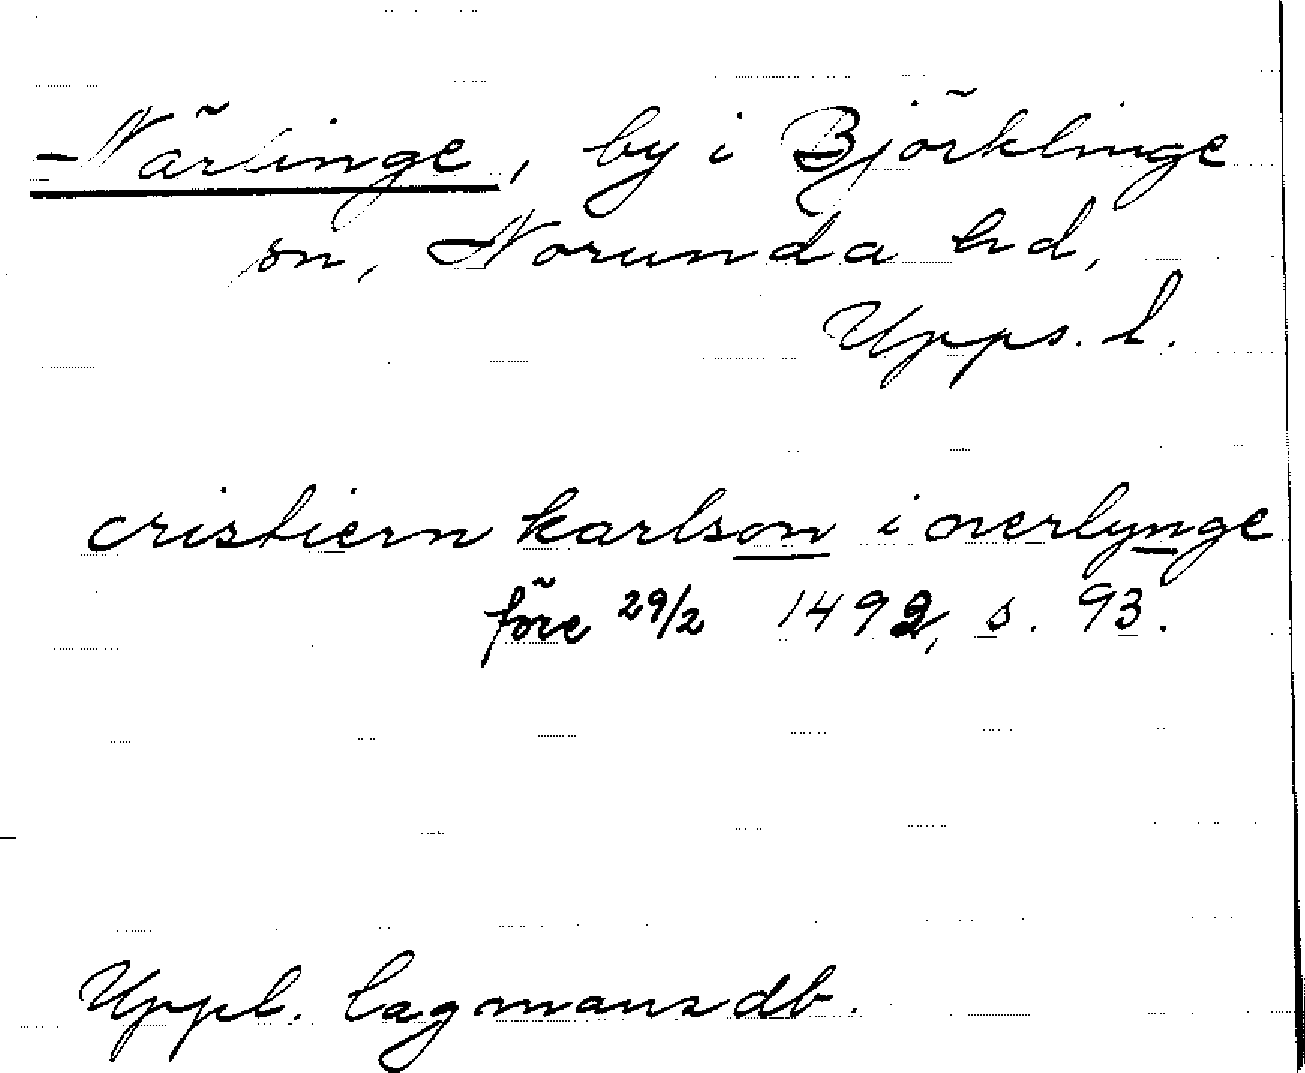 Närlinge, by i Björklinge
sn, Norunda hd,
Upps. l.
cristiern karlson i nerlynge
före 29/2 1492, s. 93.
Uppl. lagmansdb.